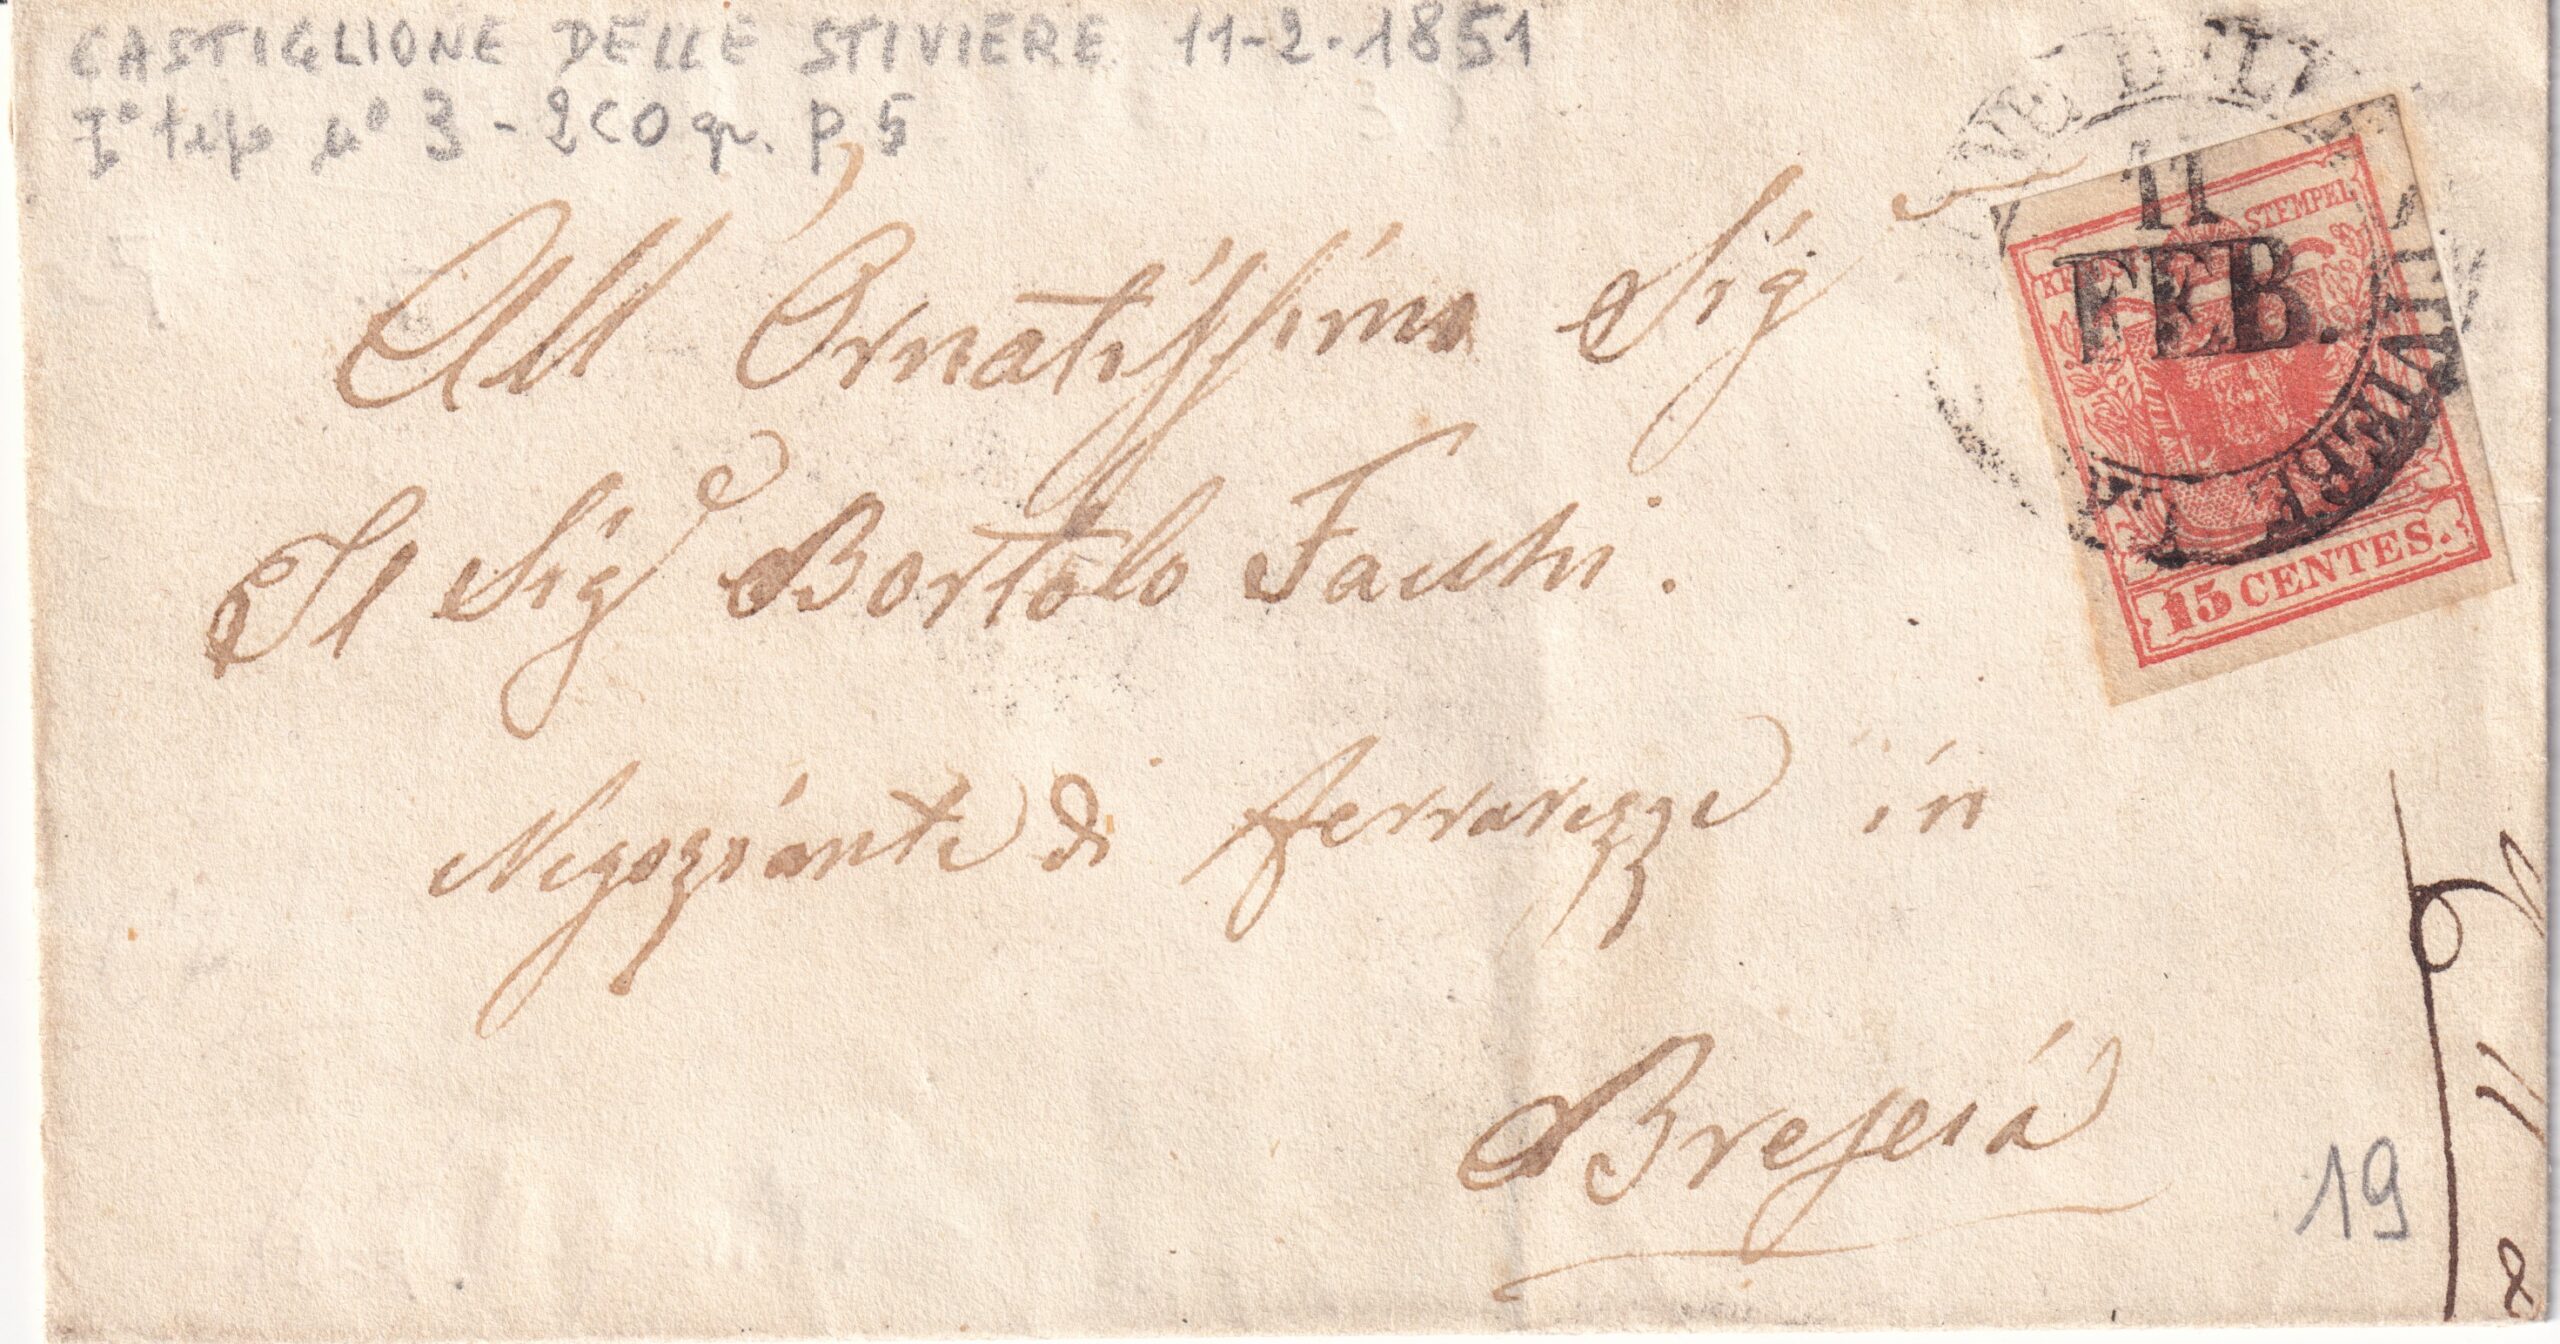 CASTIGLIONE DELLE STIVIERE 11-2-1851
I° tipo n° 3 - 2CO gr. P 5
All Ornatissimo Sig
Il Sig Bortolo Facchi.
Negozziante di ferrarezze in
Brescia
19
11
FEB.
STIVIERE
STEMPEL
15 CENTES.